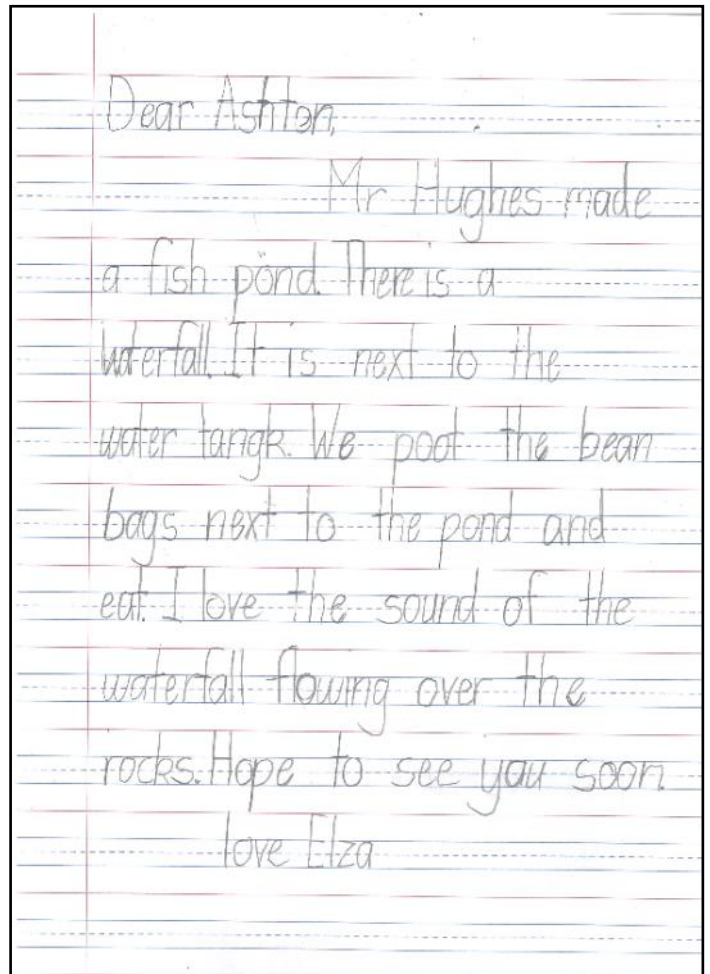 Dear Ashton,
Mr Hughes made
a fish pond. There is a
waterfall. It is next to the
water tangk. We poot the bean
bags next to the pond and
eat. I love the sound of the
waterfall flowing over the
rocks. Hope to see you soon.
love Elza